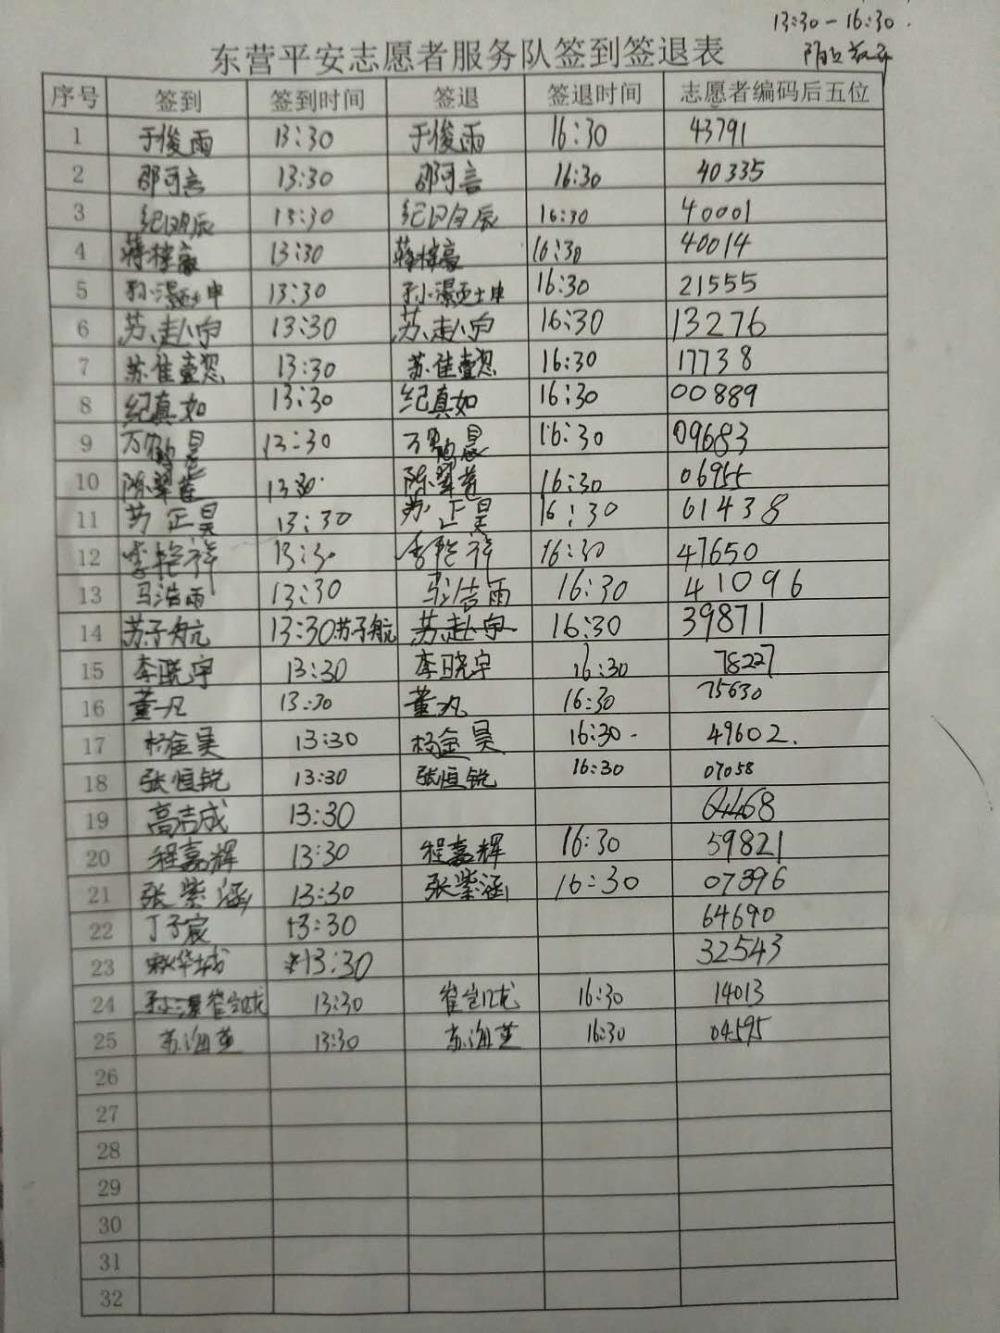 13:30-16:30.
东营平安志愿者服务队签到签退表
序号 签到 签到时间 签退 签退时间 志愿者编码后五位
1 于俊雨 13:30 于俊雨 16:30 43791
2 邵可言 13:30 邵可言 16:30 40335
3 纪明辰 13:30 纪明辰 16:30 40001
4 蒋梓豪 13:30 蒋梓豪 16:30 40014
5 13:30 16:30 21555
6 苏赴向 13:30 苏赴向 16:30 13276
7 苏佳壹 13:30 苏佳壹 16:30 17738
8 纪真如 13:30 纪真如 16:30 00889
9 13:30 16:30 09683
10 陈翠莲 13:30 陈翠莲 16:30 06955
11 苏正昊 13:30 苏正昊 16:30 61438
12 13:30 16:30 47650
13 马浩雨 13:30 马浩雨 16:30 41096
14 苏子航 13:30 苏子航 16:30 39871
15 李晓宇 13:30 李晓宇 16:30 78227
16 董凡 13:30 董凡 16:30 75630
17 杨金昊 13:30 杨金昊 16:30 49602.
18 张恒锐 13:30 张恒锐 16:30 07058
19 高吉成 13:30
20 程嘉辉 13:30 程嘉辉 16:30 59821
21 张紫涵 13:30 张紫涵 16:30 07396
22 丁子宸 13:30 64690
23 13:30 32543
24 崔凯龙 13:30 崔凯龙 16:30 14013
25 苏海英 13:30 苏海英 16:30 04595
26
27
28
29
30
31
32